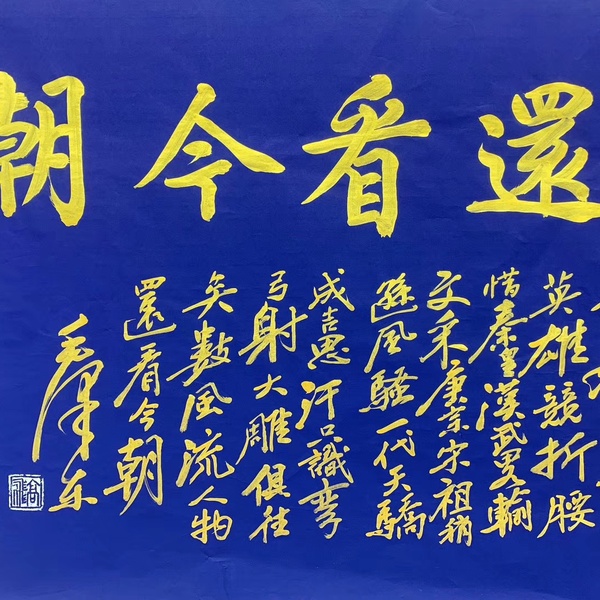 還看今朝
英雄競折腰
惜秦皇漢武畧輸
文采唐宗宋祖稍
遜風騷一代天驕
成吉思汗只識彎
弓射大雕俱往
矣數風流人物
還看今朝
毛澤东